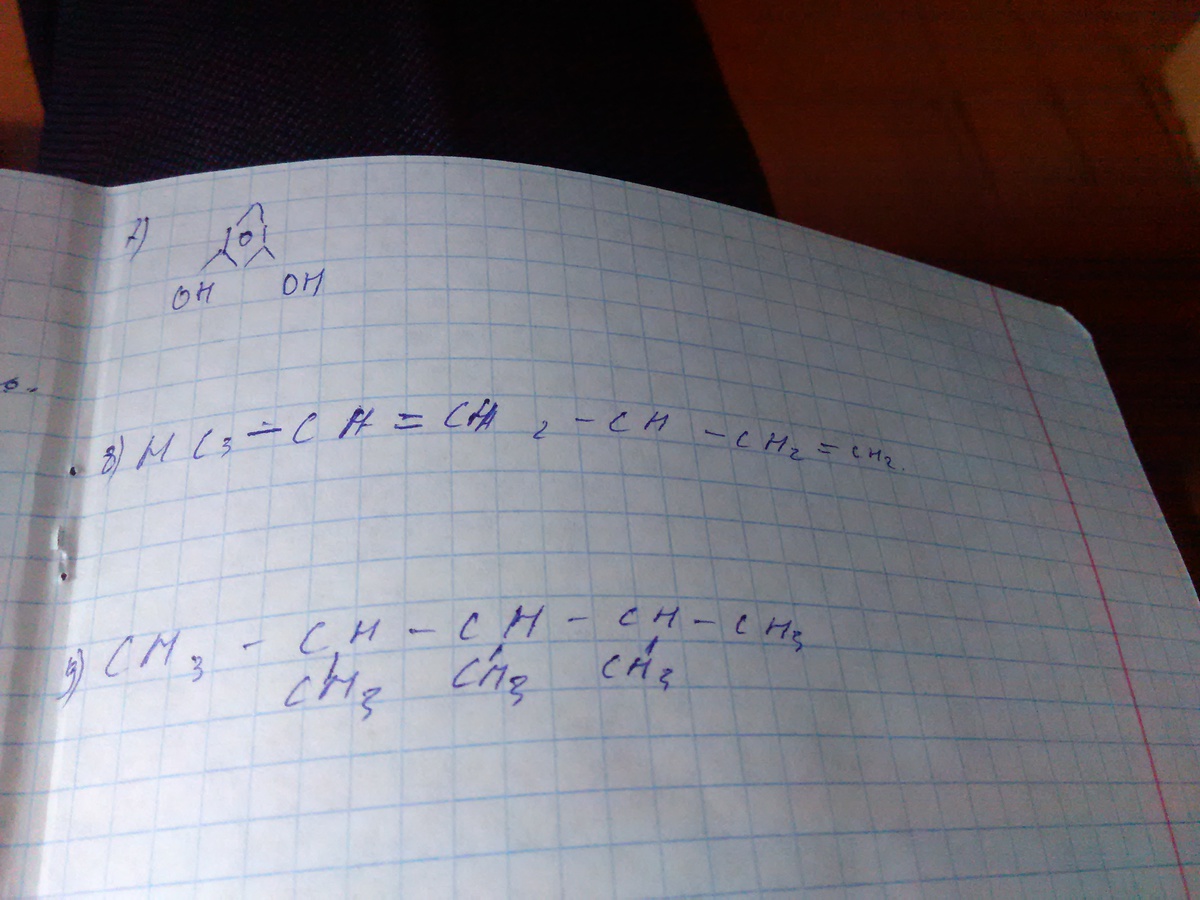 7)
OH OH
8) HC3 - CH = CH2 - CH - CH2 = CH2.
9) CH3 - CH - CH - CH - CH3
CH3 CH3 CH3